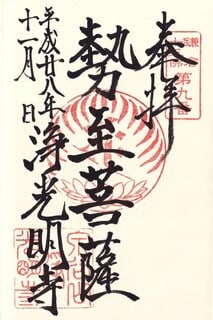 奉拝
勢至菩薩
平成廿八年
十一月 日
浄光明寺
第九番